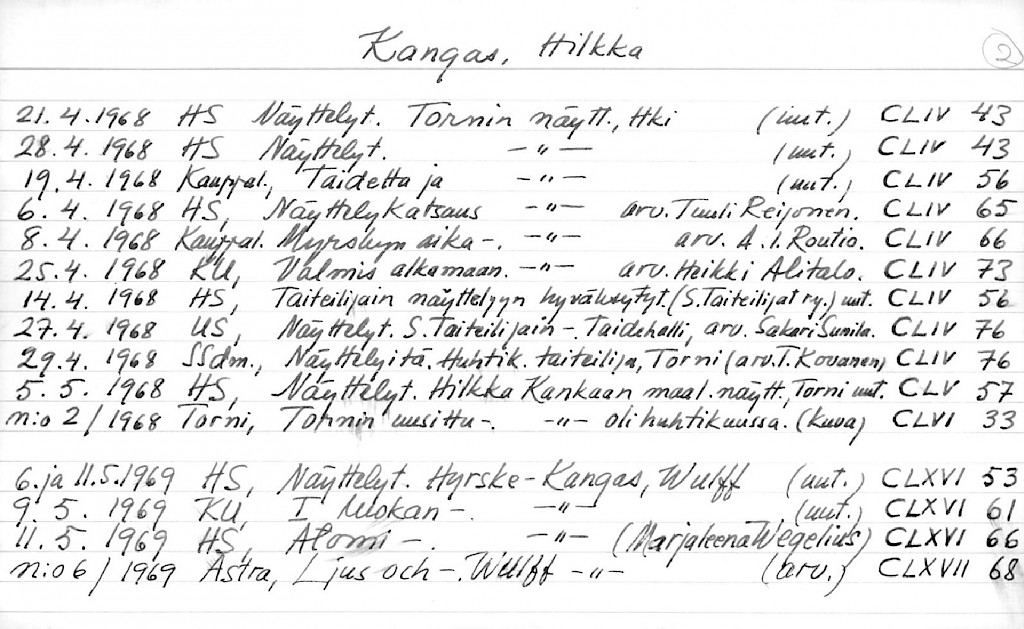 Kangas, Hilkka
2
21.4.1968 HS Näyttelyt. Tornin näytt., Hki (uut.) CLIV 43
28.4.1968 HS Näyttelyt. -"- (uut.) CLIV 43
19.4.1968 Kauppal., Taidetta ja -"- (uut.) CLIV 56
6.4.1968 HS, Näyttelykatsaus -"- arv. Tuuli Reijonen. CLIV 65
8.4.1968 Kauppal. Myrskyn aika -. -"- arv. A.I. Routio. CLIV 66
25.4.1968 KU, Valmis alkamaan. -"- arv. Heikki Alitalo. CLIV 73
14.4.1968 HS, Taiteilijain näyttelyyn hyväksytyt. (S.Taiteilijat ry.) uut. CLIV 56
27.4.1968 US, Näyttelyt. S.Taiteilijain -, Taidehalli, arv. Sakari Sunila. CLIV 76
29.4.1968 SSdm., Näyttelyitä. Huhtik. taiteilija, Torni (arv. T. Kovanen) CLIV 76
5.5.1968 HS, Näyttelyt. Hilkka Kankaan maal.näytt., Torni uut. CLV 57
n:o 2/1968 Torni, Tornin uusittu -. -"- oli huhtikuussa. (kuva) CLVI 33
6. ja 11.5.1969 HS, Näyttelyt. Hyrske-Kangas, Wulff (uut.) CLXVI 53
9.5.1969 KU, I luokan -. -"- (uut.) CLXVI 61
11.5.1969 HS, Atomi -. -"- (Marjaleena Wegelius) CLXVI 66
n:o 6/1969 Astra, Ljus och -. Wulff -"- (arv.) CLXVII 68